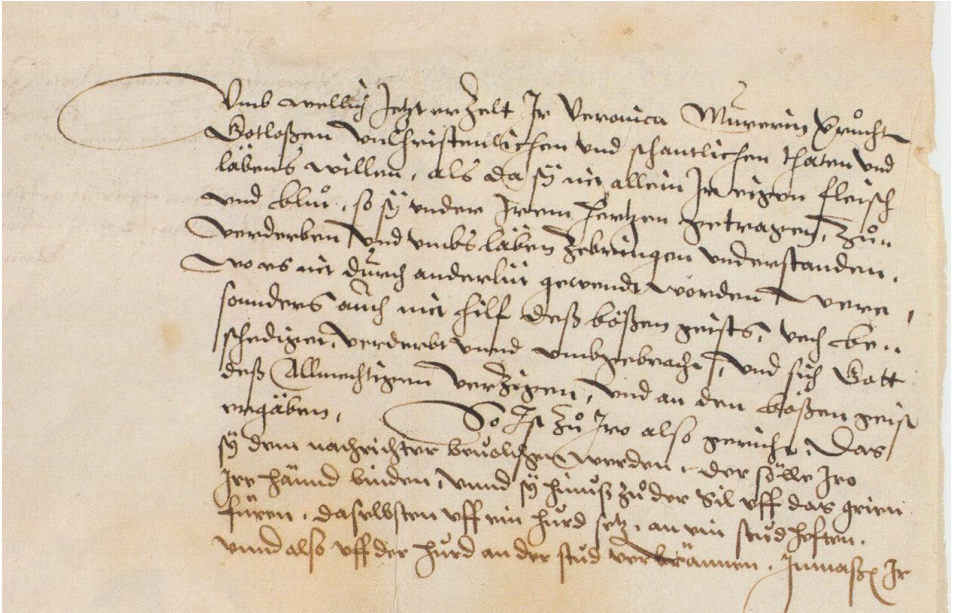 Umb wellich Jetzt erzelt Ir Veronica Murerin Vrücht
Gotloßen unchristenlichen und schantlichen thaten und
läbens willen, als da sÿ nit allein Ir eigen fleisch
und blůt, so sÿ under Irem hertzen getragen, Zů„
verderben und umbs läben zebringen understanden,
wo es nit durch ander lüt gewendt worden were,
sonnders auch mit hilf deß bößen geists, vech be„
schediget, verderbt unnd umbgebracht, und sich Gott
deß Allmechtigen verzigen, und an den bößen geist
ergäben, So Ist zů Iro also gericht, Das
sÿ dem nachrichter bevolhen werden, der sölle Iro
Ire hännd binden, unnd sÿ hinuß zů der Sil uff das grien
füren, daselbsten uff ein hurd setzen, an ein stud heften,
unnd also uff der hurd an der stud verbrännen, Inmaßen Ir